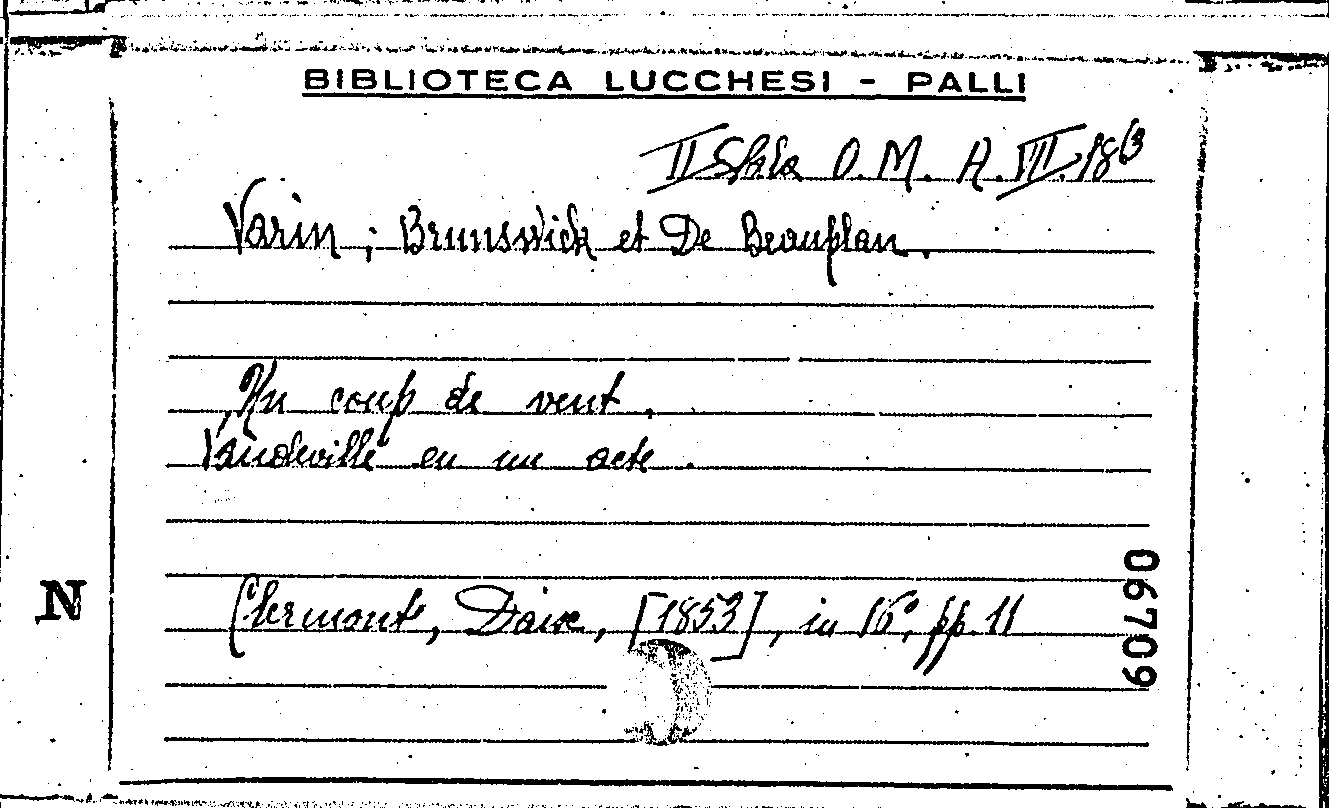 BIBLIOTECA LUCCHESI - PALLI
II Sala O. M. A. VII. 18
Varin ; Brunswick et De Beauplan.
Un coup de vent.
Vaudeville en un acte.
N
Clermont, Daix, [1853], in 16°, pp. 11
06709